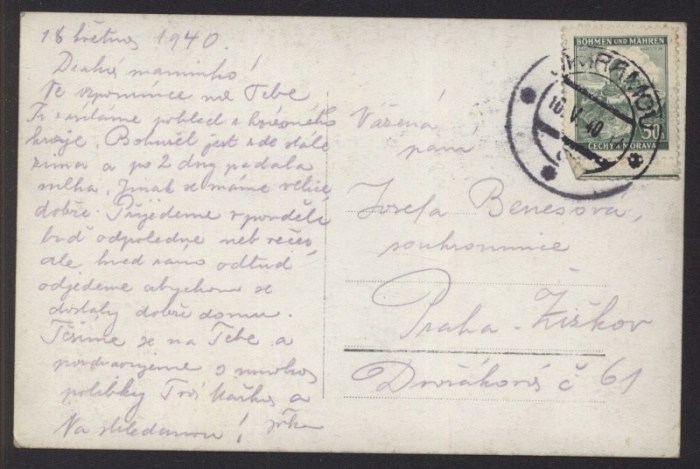 18 května 1940.
Drahá maminko!
Ve vzpomínce na Tebe
Ti zasíláme pohled z krásného
kraje. Bohužel jest zde stále
zima a po 2 dny padala
mlha. Jinak se máme velice
dobře. Přijedeme v pondělí
buď odpoledne neb večer,
ale hned ráno odtud
odjedeme abychom se
dostaly dobře domu.
Těšíme se na Tebe a
pozdravujeme s mnoha
polibky Tvá a
Na shledanou! Jirka
Vážená
paní
Josefa Benešová,
soukromnice
Praha - Žižkov
Dvořákova č 61
BÖHMEN UND MÄHREN
50
ČECHY A MORAVA
JIMRAMOV
V. 40